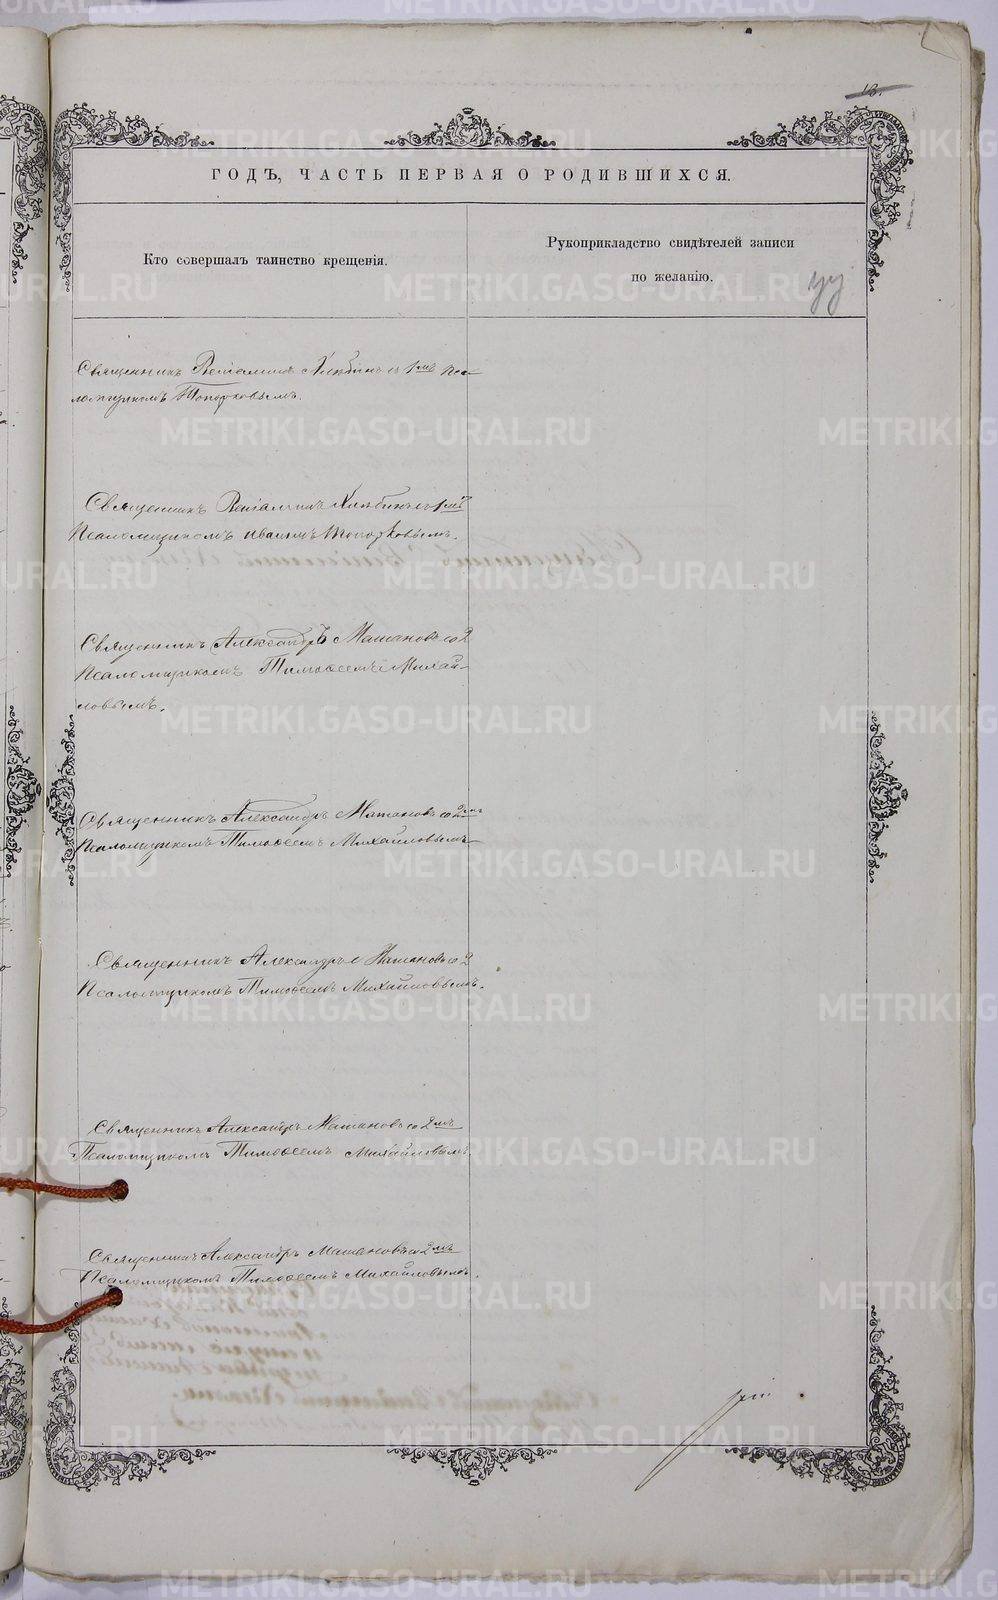 13.
ГОДЪ, ЧАСТЬ ПЕРВАЯ О РОДИВШИХСЯ.
Кто совершалъ таинство крещенія.
Рукоприкладство свидѣтелей записи
по желанію.
Священникъ Веніаминъ Хлѣбинъ съ 1мъ Пса-
ломщикомъ Топорковымъ.
Священникъ Веніаминъ Хлѣбинъ съ 1мъ
Псаломщикомъ Иваномъ Топорковымъ.
Священникъ Александръ Матановъ со 2
Псаломщикомъ Тимоѳеемъ Михай-
ловымъ.
Священникъ Александръ Матановъ со 2мъ
Псаломщикомъ Тимоѳеемъ Михайловымъ
Священникъ Александръ Матановъ со 2
Псаломщикомъ Тимоѳеемъ Михайловымъ.
Священникъ Александръ Матановъ со 2мъ
Псаломщикомъ Тимоѳеемъ Михайловымъ.
Священникъ Александръ Матановъ со 2мъ
Псаломщикомъ Тимоѳеемъ Михайловымъ.
METRIKI.GASO-URAL.RU